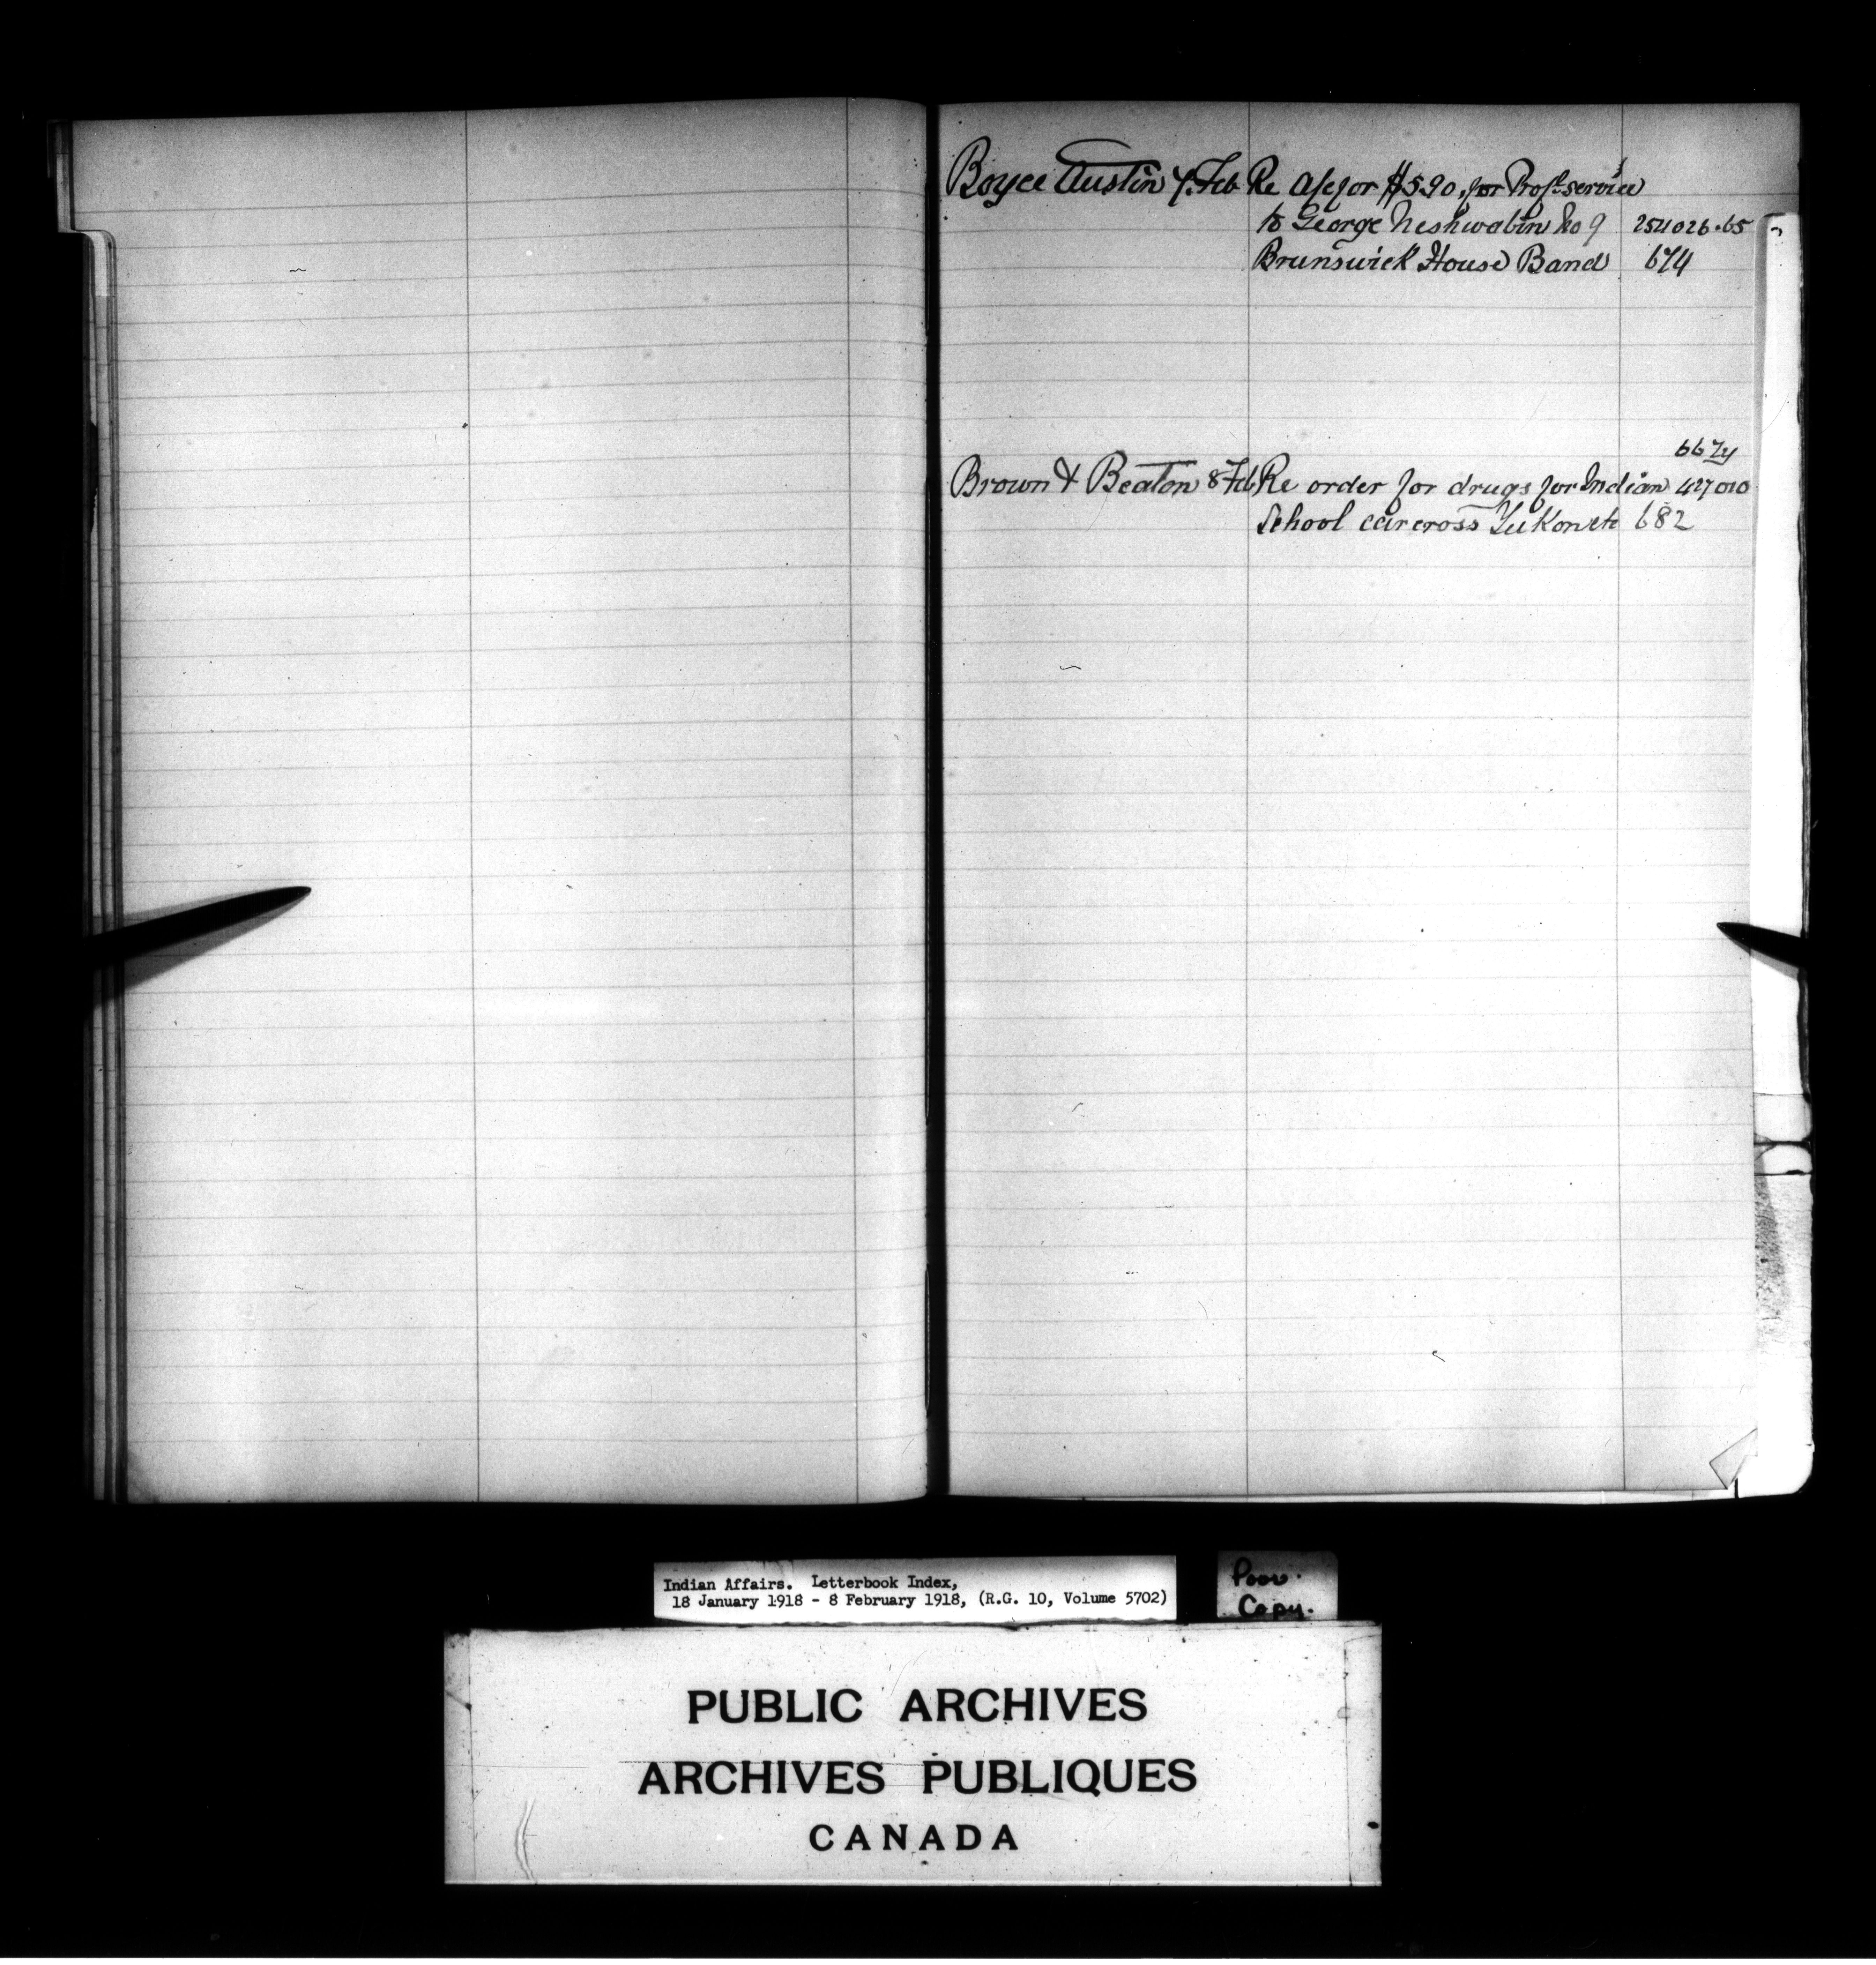 Boyce Austin 4. Feb Re a/c for $5.90 for Prof. service
to George Neshwabin No 9 254026-65
Brunswick House Band 674
667y
Brown & Beaton 8 Feb Re order for drugs for Indian 427010
School carcross Yukon etc 682
Indian Affairs. Letterbook Index,
18 January 1918 - 8 February 1918, (R.G. 10, Volume 5702)
Poor.
Copy.
PUBLIC ARCHIVES
ARCHIVES PUBLIQUES
CANADA